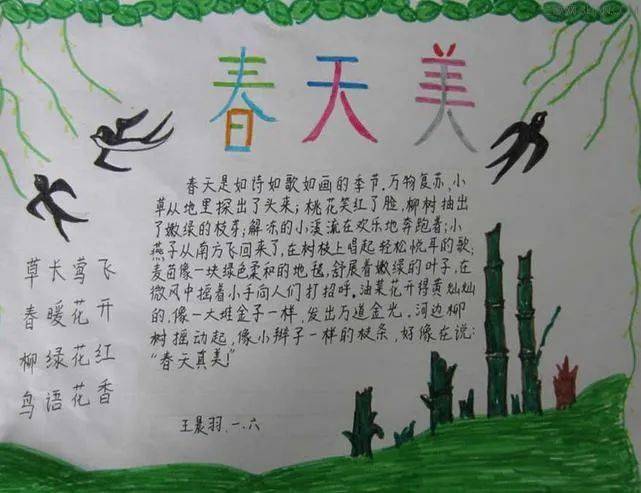 春天美
春天是如诗如歌如画的季节,万物复苏,小
草从地里探出了头来;桃花笑红了脸,柳树抽出
了嫩绿的枝芽;解冻的小溪流在欢乐地奔跑着;小
燕子从南方飞回来了,在树枝上唱起轻松悦耳的歌;
麦苗像一块绿色柔和的地毯,舒展着嫩绿的叶子,在
微风中摇着小手向人们打招呼。油菜花开得黄灿灿
的,像一大堆金子一样,发出万道金光。河边柳
树摇动起,像小辫子一样的枝条,好像在说:
“春天真美!”
王晨羽、一、六
草长莺飞
春暖花开
柳绿花红
鸟语花香